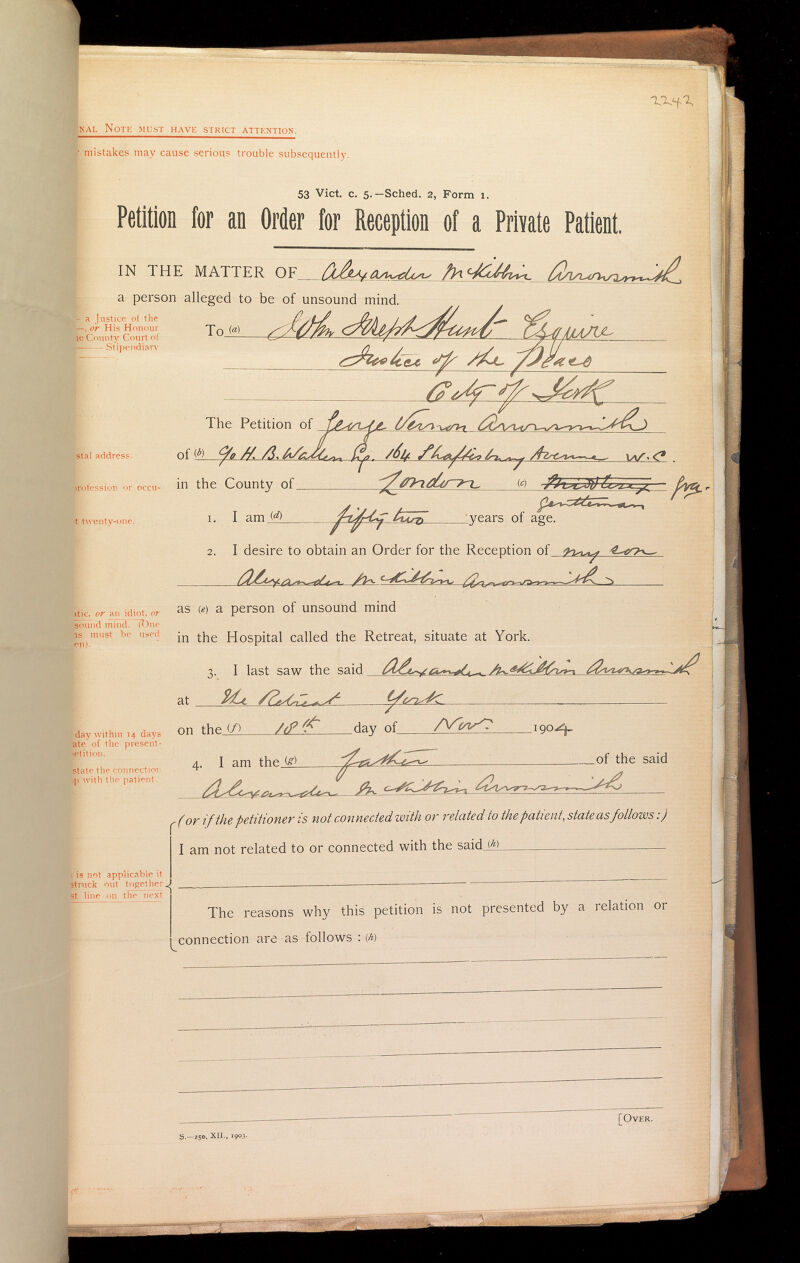 2242
NAL NOTE MUST HAVE STRICT ATTENTION.
mistakes may cause serious trouble subsequently.
53 Vict. c. 5.—Sched. 2, Form 1.
Petition for an Order for Reception of a Private Patient.
IN THE MATTER OF Alexander McKibbin Arrowsmith
a person alleged to be of unsound mind.
- a Justice of the
—, or His Honour
County Court of
Stipendiary
To (a) John Joseph Hunt Esquire
Justice of the Peace
City of York
The Petition of George Vernon Arrowsmith
stal address.
of (b) c/o H. B. Wallen Esq. 164 Shaftesbury Avenue W.C.
rofession or occu-
in the County of London (c) Middlesex
Gentleman
t twenty-one.
1. I am (d) fifty two years of age.
2. I desire to obtain an Order for the Reception of my son
Alexander McKibbin Arrowsmith
tic, or an idiot, or
sound mind. (One
s must be used
en).
as (e) a person of unsound mind
in the Hospital called the Retreat, situate at York.
3. I last saw the said Alexander McKibbin Arrowsmith
at The Retreat York
day within 14 days
ate of the present-
etition.
on the (f) 18th day of Novr. 1904
state the connection
p with the patient
4. I am the (g) father of the said
Alexander McKibbin Arrowsmith
(or if the petitioner is not connected with or related to the patient, state as follows:)
I am not related to or connected with the said (h)
is not applicable it
struck out together
st line on the next
The reasons why this petition is not presented by a relation or
connection are as follows : (h)
[OVER.
S.—250, XII., 1903.